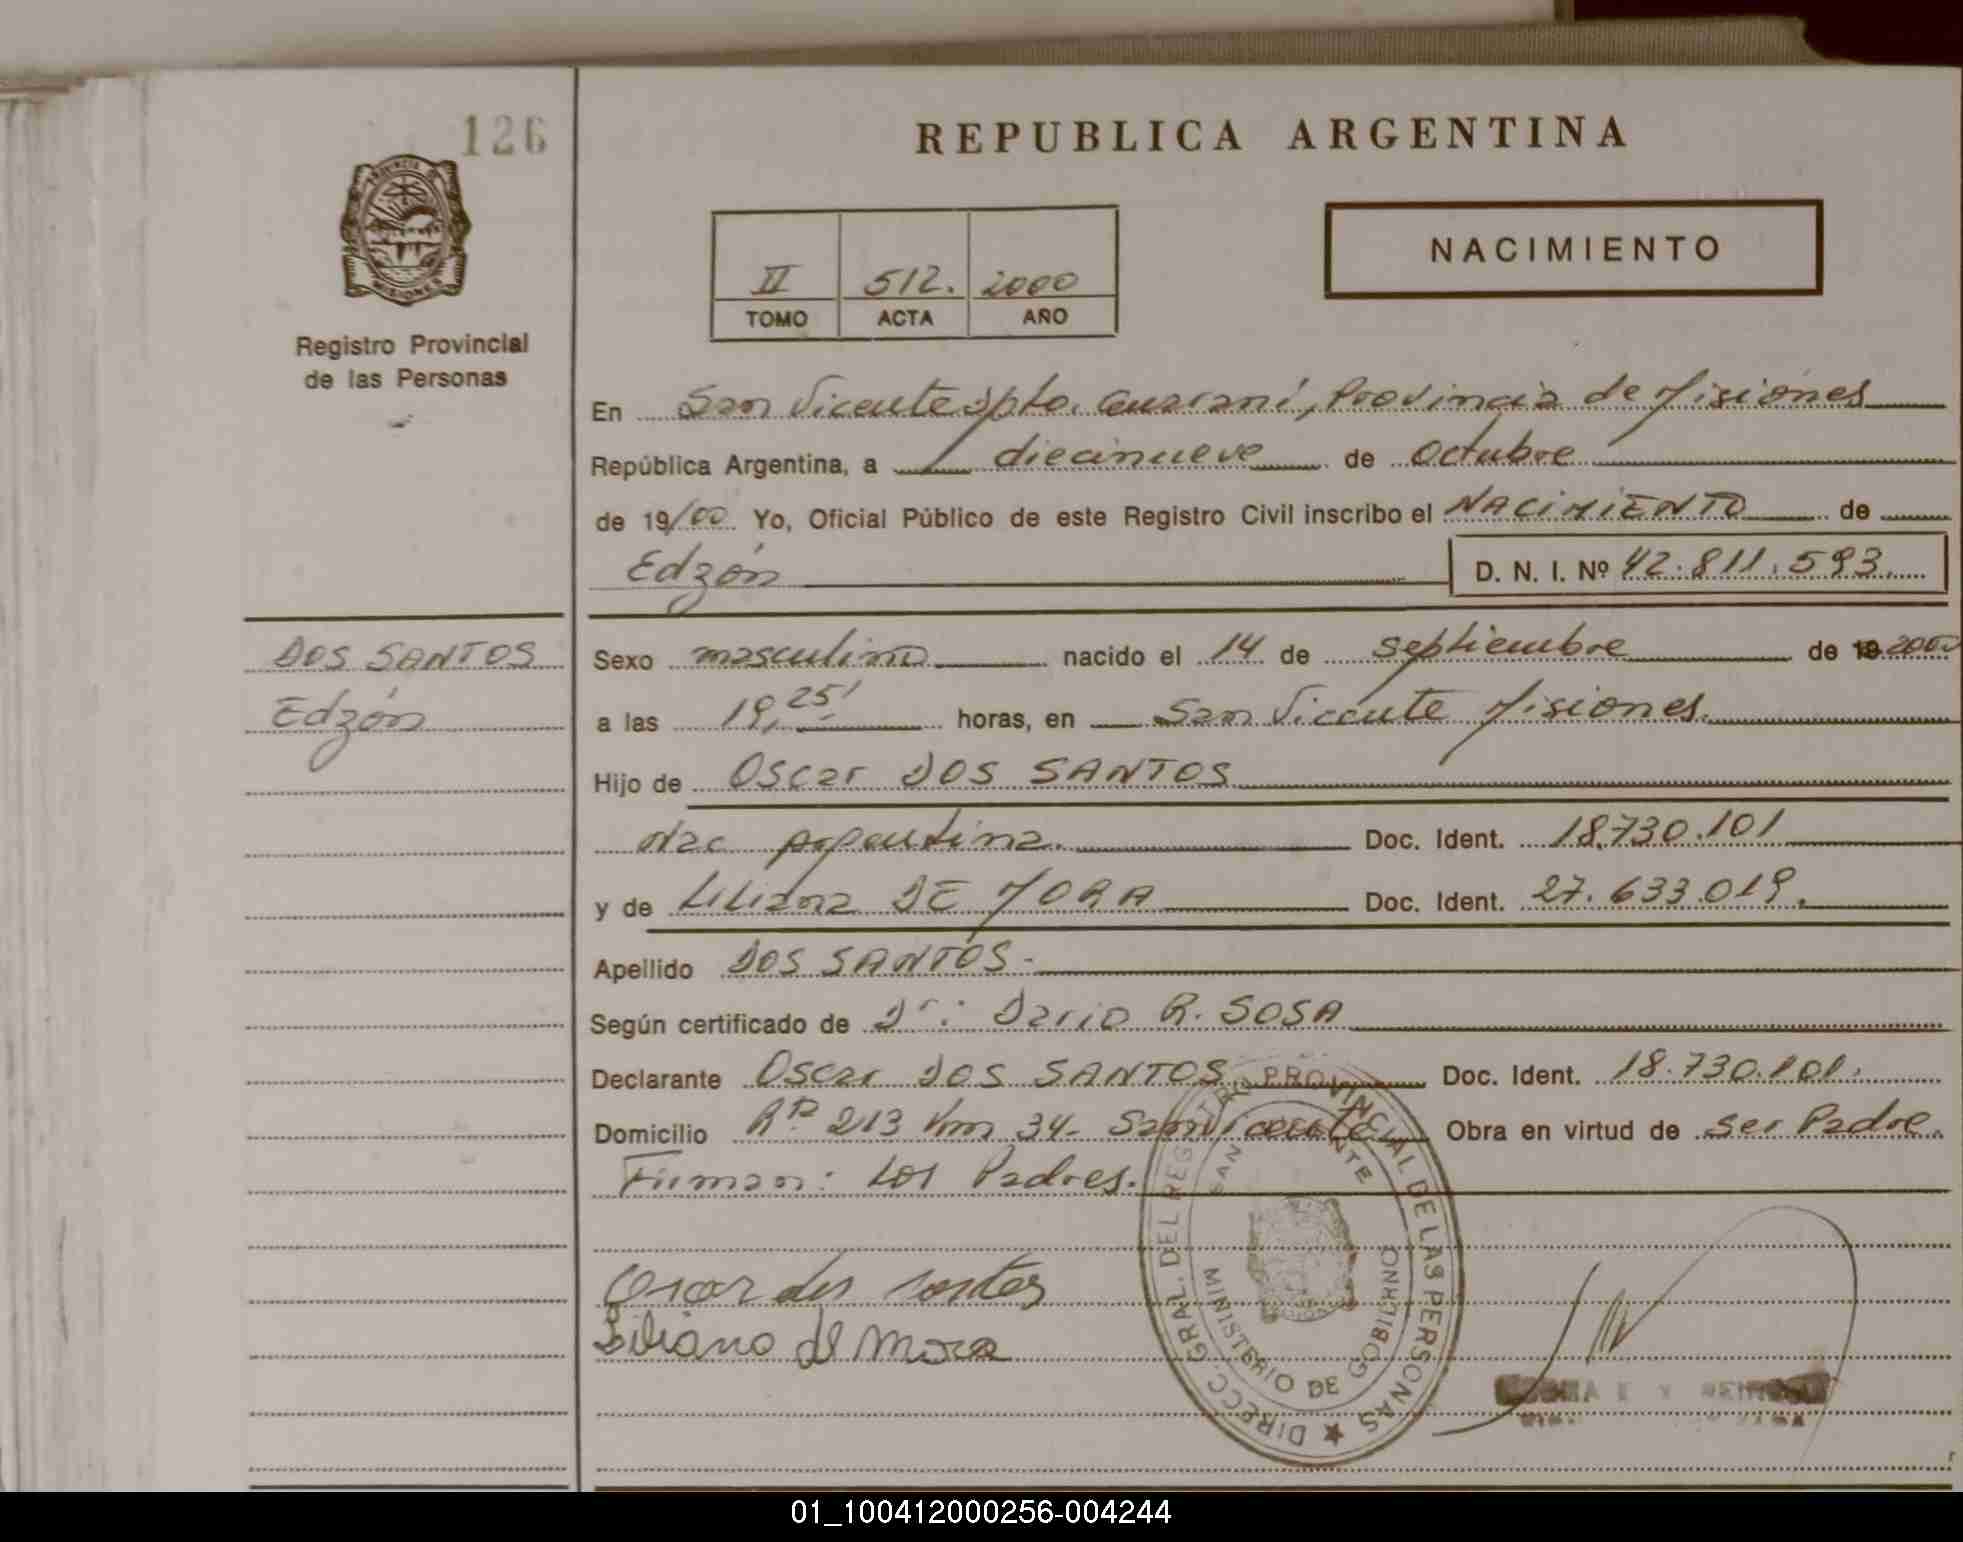 126
REPUBLICA ARGENTINA
PROVINCIA DE
MISIONES
NACIMIENTO
II 512. 2000
TOMO ACTA AÑO
Registro Provincial
de las Personas
En San Vicente Dpto. Guaraní, Provincia de Misiones
República Argentina, a diecinueve de Octubre
de 19/00 Yo, Oficial Público de este Registro Civil inscribo el NACIMIENTO de
Edzón D. N. I. Nº 42.811.593.
DOS SANTOS
Edzón
Sexo masculino nacido el 14 de septiembre de 19 2000
a las 19,25' horas, en San Vicente Misiones.
Hijo de Oscar DOS SANTOS
Nac Argentina. Doc. Ident. 18.730.101
y de Liliana DE MORA Doc. Ident. 27.633.019.
Apellido DOS SANTOS.
Según certificado de Dr: Dario R. SOSA
Declarante Oscar DOS SANTOS Doc. Ident. 18.730.101.
Domicilio Rta 213 Km 34- San Vicente Obra en virtud de ser Padre.
Firman: Los Padres.
Oscar dos santos
Liliana de Mora
DIRECC GRAL. DEL REGISTRO PROVINCIAL DE LAS PERSONAS
SAN VICENTE
MINISTERIO DE GOBIERNO
01_100412000256-004244